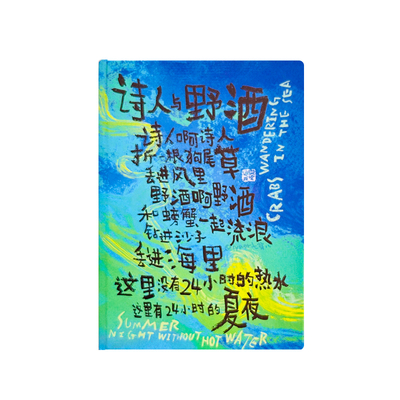 诗人与野酒
诗人啊诗人
折一根狗尾草
丢进风里
野酒啊野酒
和螃蟹一起流浪
钻进沙子
丢进海里
这里没有24小时的热水
这里有24小时的夏夜
CRABS WANDERING
IN THE SEA
SUMMER
NIGHT WITHOUT HOT WATER